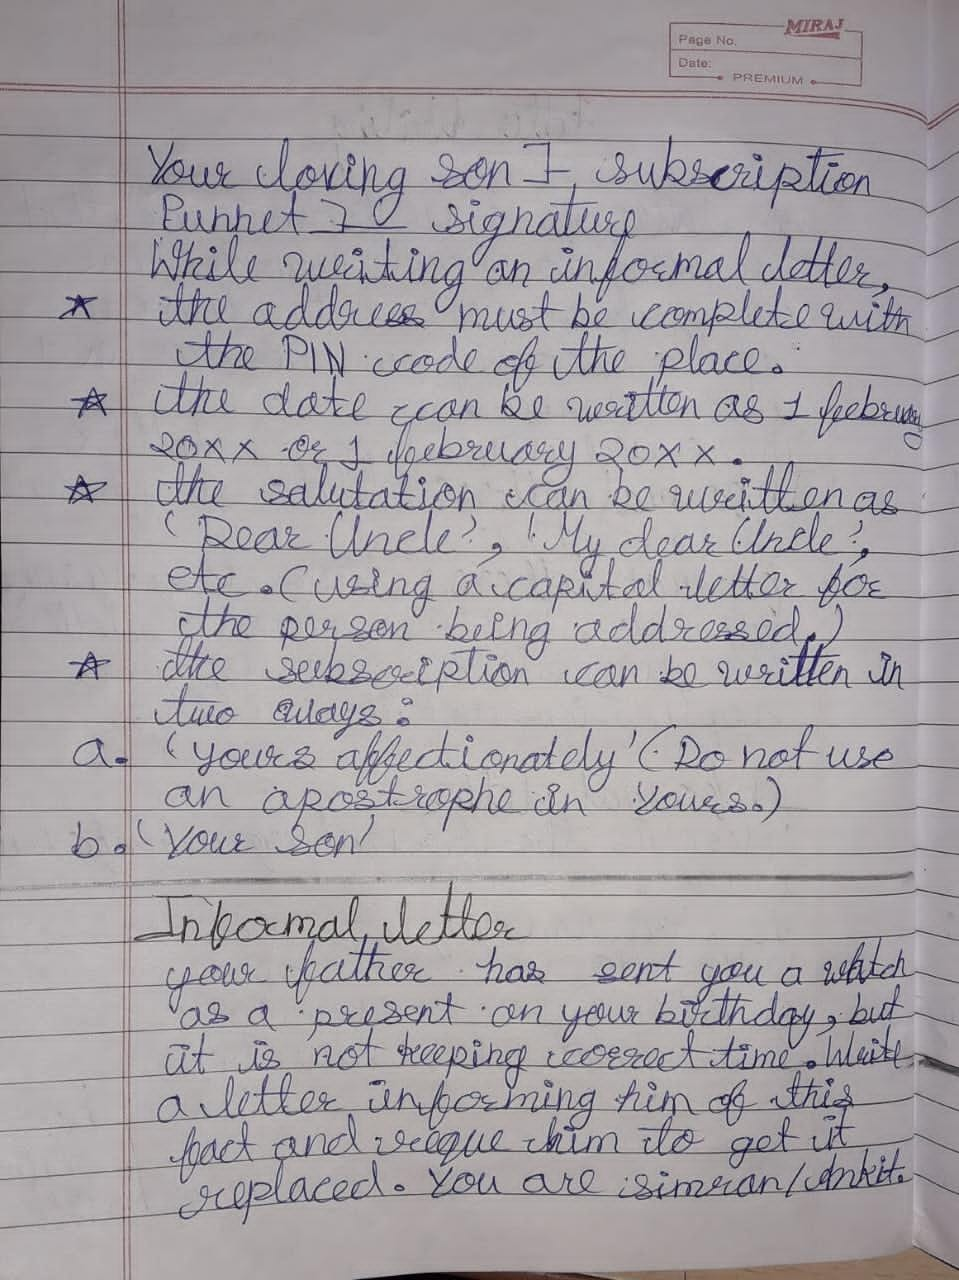 MIRAJ
Page No.
Date:
PREMIUM
Your loving son ], subscription
Punnet ] signature
While writing an informal letter,
☆ the address must be complete with
the PIN code of the place.
☆ the date can be written as 1 feebruary
20xx or 1 feebruary 20xx.
☆ the salutation can be written as
'Dear Uncle', 'My dear Uncle',
etc. (using a capital letter for
the person being addressed.)
☆ the subscription can be written in
two ways:
a. 'yours affectionately' (Do not use
an apostrophe in yours.)
b. 'Your son'
Informal letter
your father has sent you a watch
as a present on your birthday, but
it is not keeping correct time. Write
a letter informing him of this
fact and reque him to get it
replaced. You are simran/Ankit.